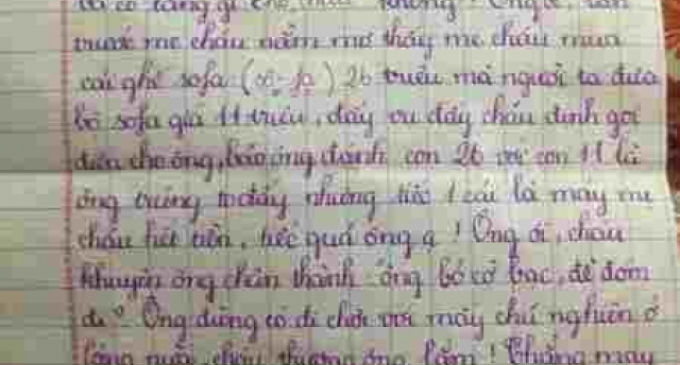 trước mẹ cháu nằm mơ thấy mẹ cháu mua
cái ghế sofa (xô-fa) 26 triệu mà người ta đưa
bộ sofa giá 11 triệu, đấy ví đấy cháu định gọi
điện cho ông, bảo ông đánh con 26 với con 11 là
ông trúng to đấy nhưng tiếc 1 cái là máy mẹ
cháu hết tiền, tiếc quá ông ạ! Ông ơi, cháu
khuyên ông chân thành ông bỏ cờ bạc, đề đóm
đi. Ông đừng có đi chơi với mấy chú nghiện ở
làng nữa, cháu thương ông lắm! Chẳng may